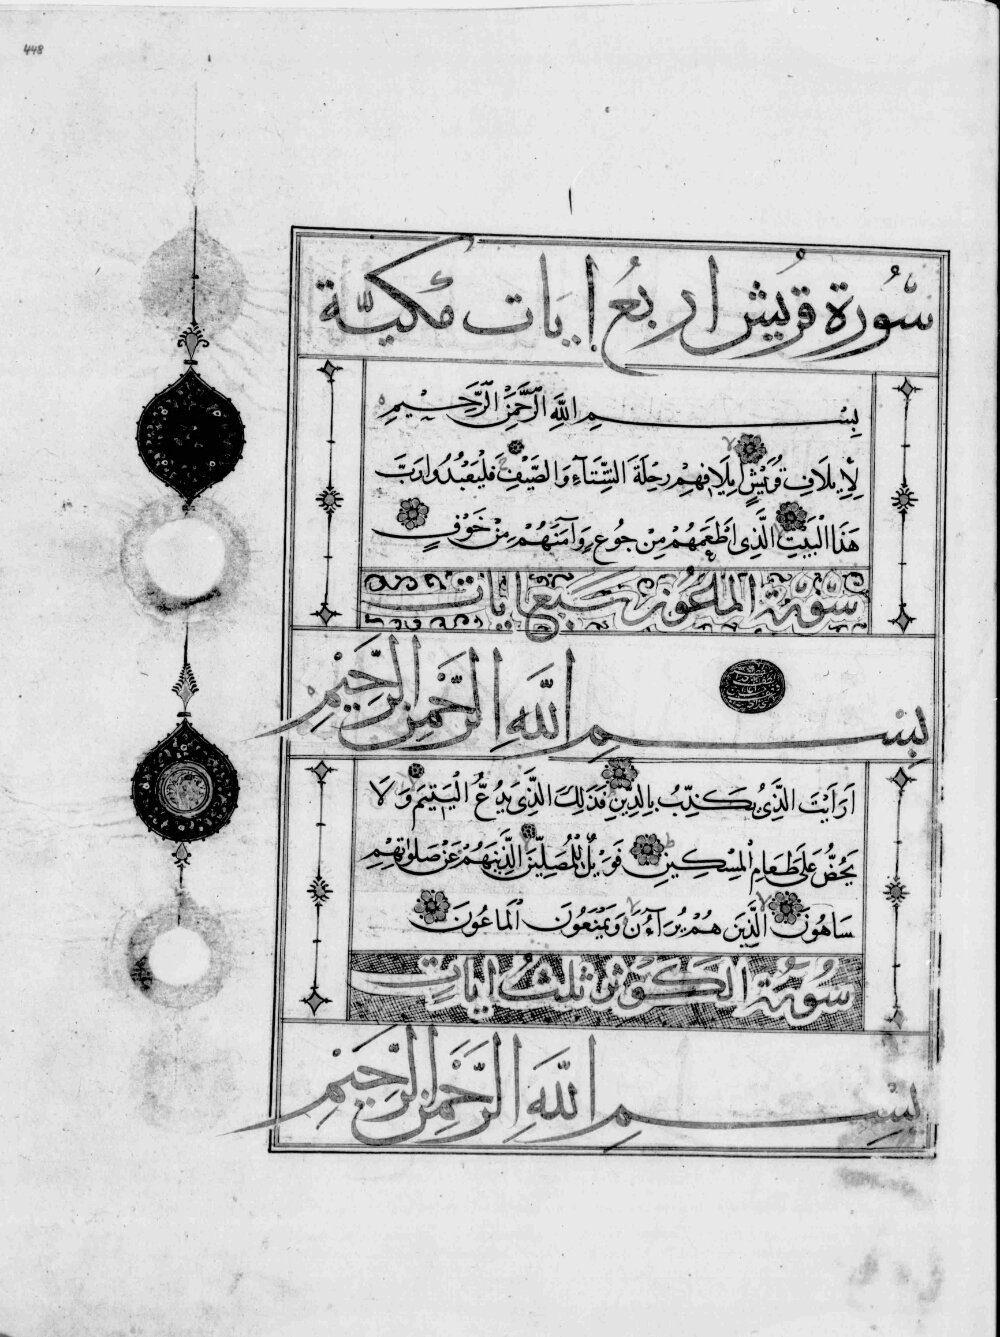 448
سُورة قُريش اربعُ اٖيات مكيّة
بِسْــمِ اللَّهِ الرَّحْمَنِ الرَّحِيمِ
لِإِيلَافِ قُرَيْشٍ إِيلَافِهِمْ رِحْلَةَ الشِّتَآءِ وَالصَّيْفِ فَلْيَعْبُدُوا رَبَّ
هَذَا الْبَيْتِ الَّذِى اَطْعَمَهُمْ مِنْ جُوعٍ وَآمَنَهُمْ مِنْ خَوْفٍ
سورة الماعون سبع ايات
بِسْــمِ اللَّهِ الرَّحْمَنِ الرَّحِيمِ
اَرَاَيْتَ الَّذِى يُكَذِّبُ بِالدِّينِ فَذَلِكَ الَّذِى يَدُعُّ الْيَتِيمَ وَلَا
يَحُضُّ عَلَى طَعَامِ الْمِسْكِينِ فَوَيْلٌ لِلْمُصَلِّينَ الَّذِينَ هُمْ عَنْ صَلَوتِهِمْ
سَاهُونَ الَّذِينَ هُمْ يُرَآءُونَ وَيَمْنَعُونَ الْمَاعُونَ
سُورة الكَوثر ثلثُ ايَاتٍ
بِسْــمِ اللَّهِ الرَّحْمَنِ الرَّحِيمِ